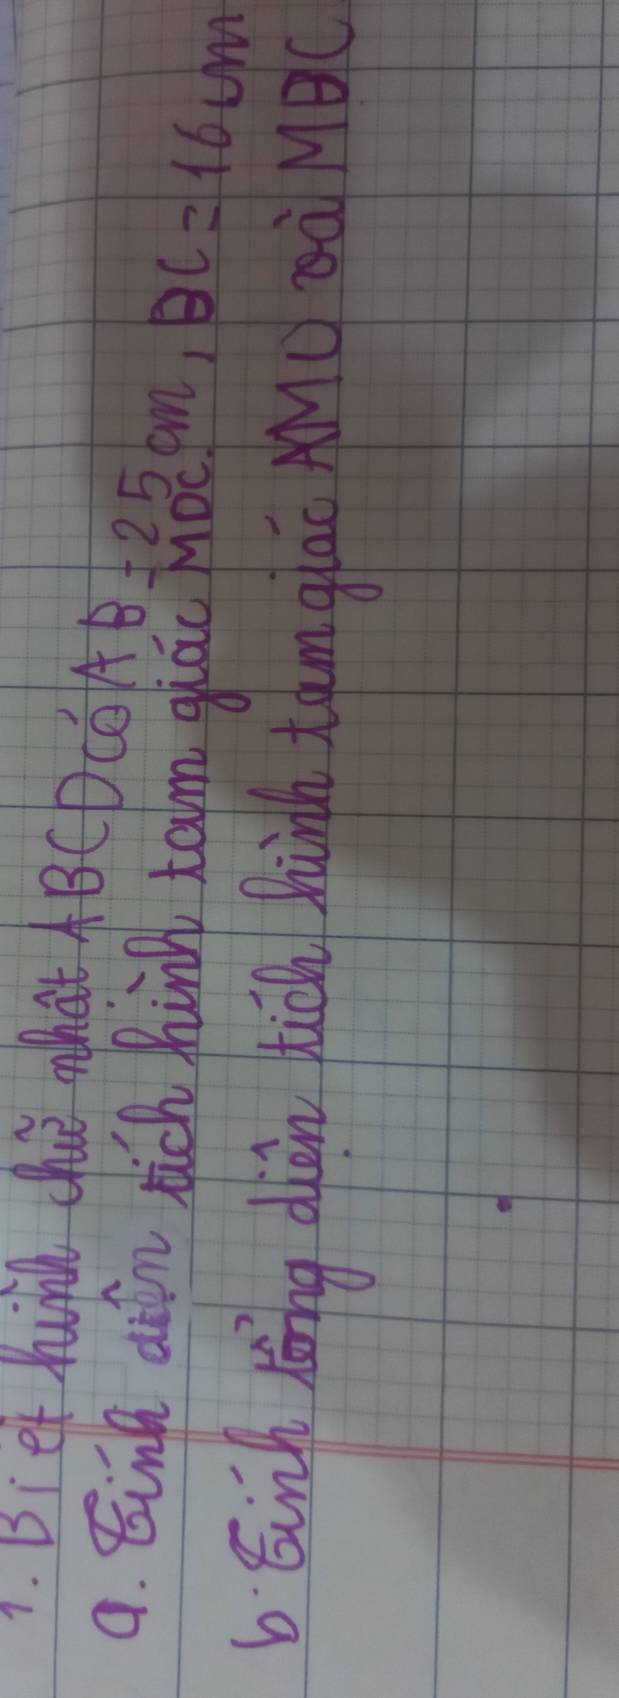 1. Biết hình chữ nhật ABCD có AB = 25 cm, BC = 16 cm
a. Tính diện tích hình tam giác MDC.
b. Tính tổng diện tích hình tam giác AMD và MBC